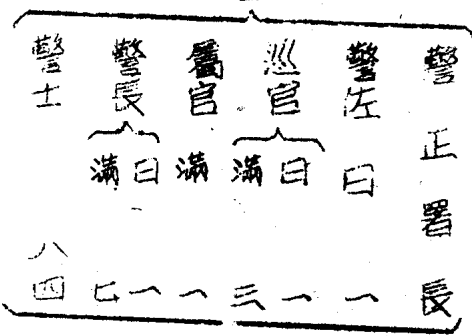 警正署長
警佐 日 一
巡官 日 一
滿 三
屬官 滿 一
警長 日 一
滿 七
警士 八四